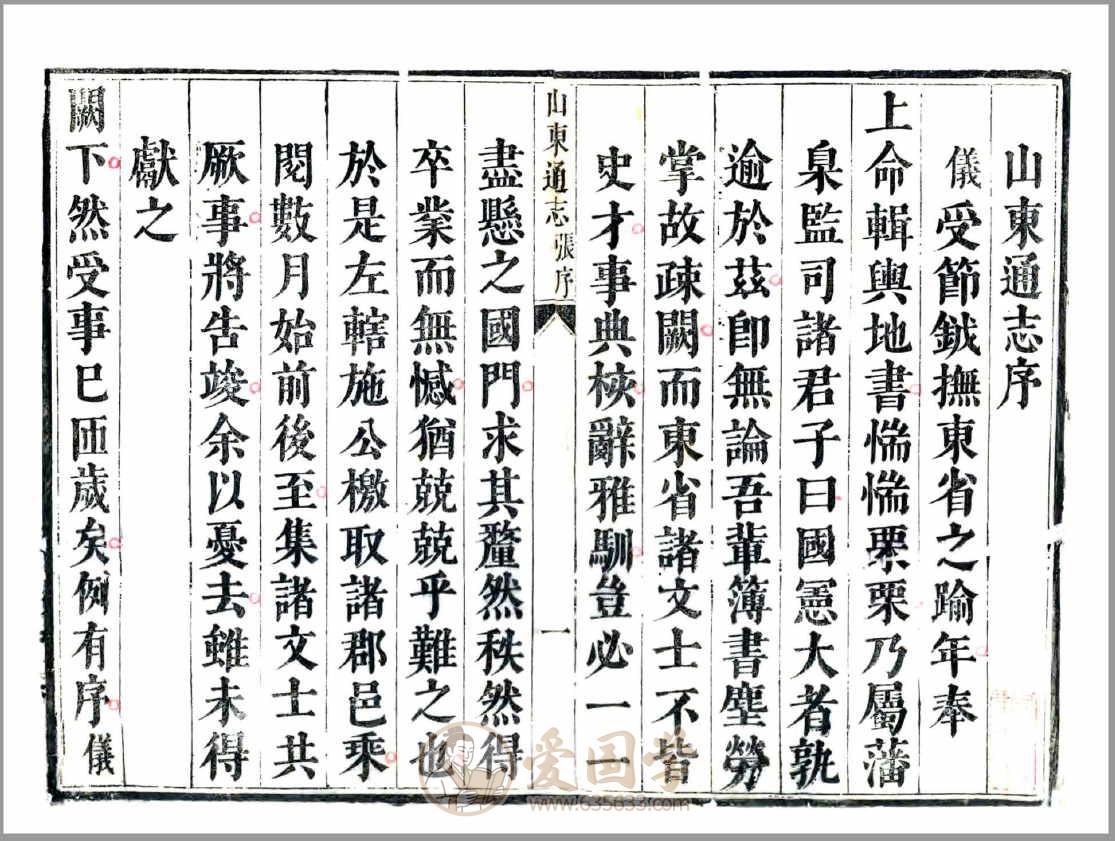 山東通志序
儀受節鉞撫東省之踰年奉
上命輯輿地書惴惴栗栗乃屬藩
臬監司諸君子曰國憲大者孰
逾於茲卽無論吾輩簿書塵勞
掌故疎闕而東省諸文士不皆
史才事典核辭雅馴豈必一一
山東通志 張序 一
盡懸之國門求其釐然秩然得
卒業而無憾猶兢兢乎難之也
於是左轄施公檄取諸郡邑乘
閱數月始前後至集諸文士共
厥事將告竣余以憂去雖未得
獻之
闕下然受事已匝歲矣例有序儀
爱国学
www.635633.com